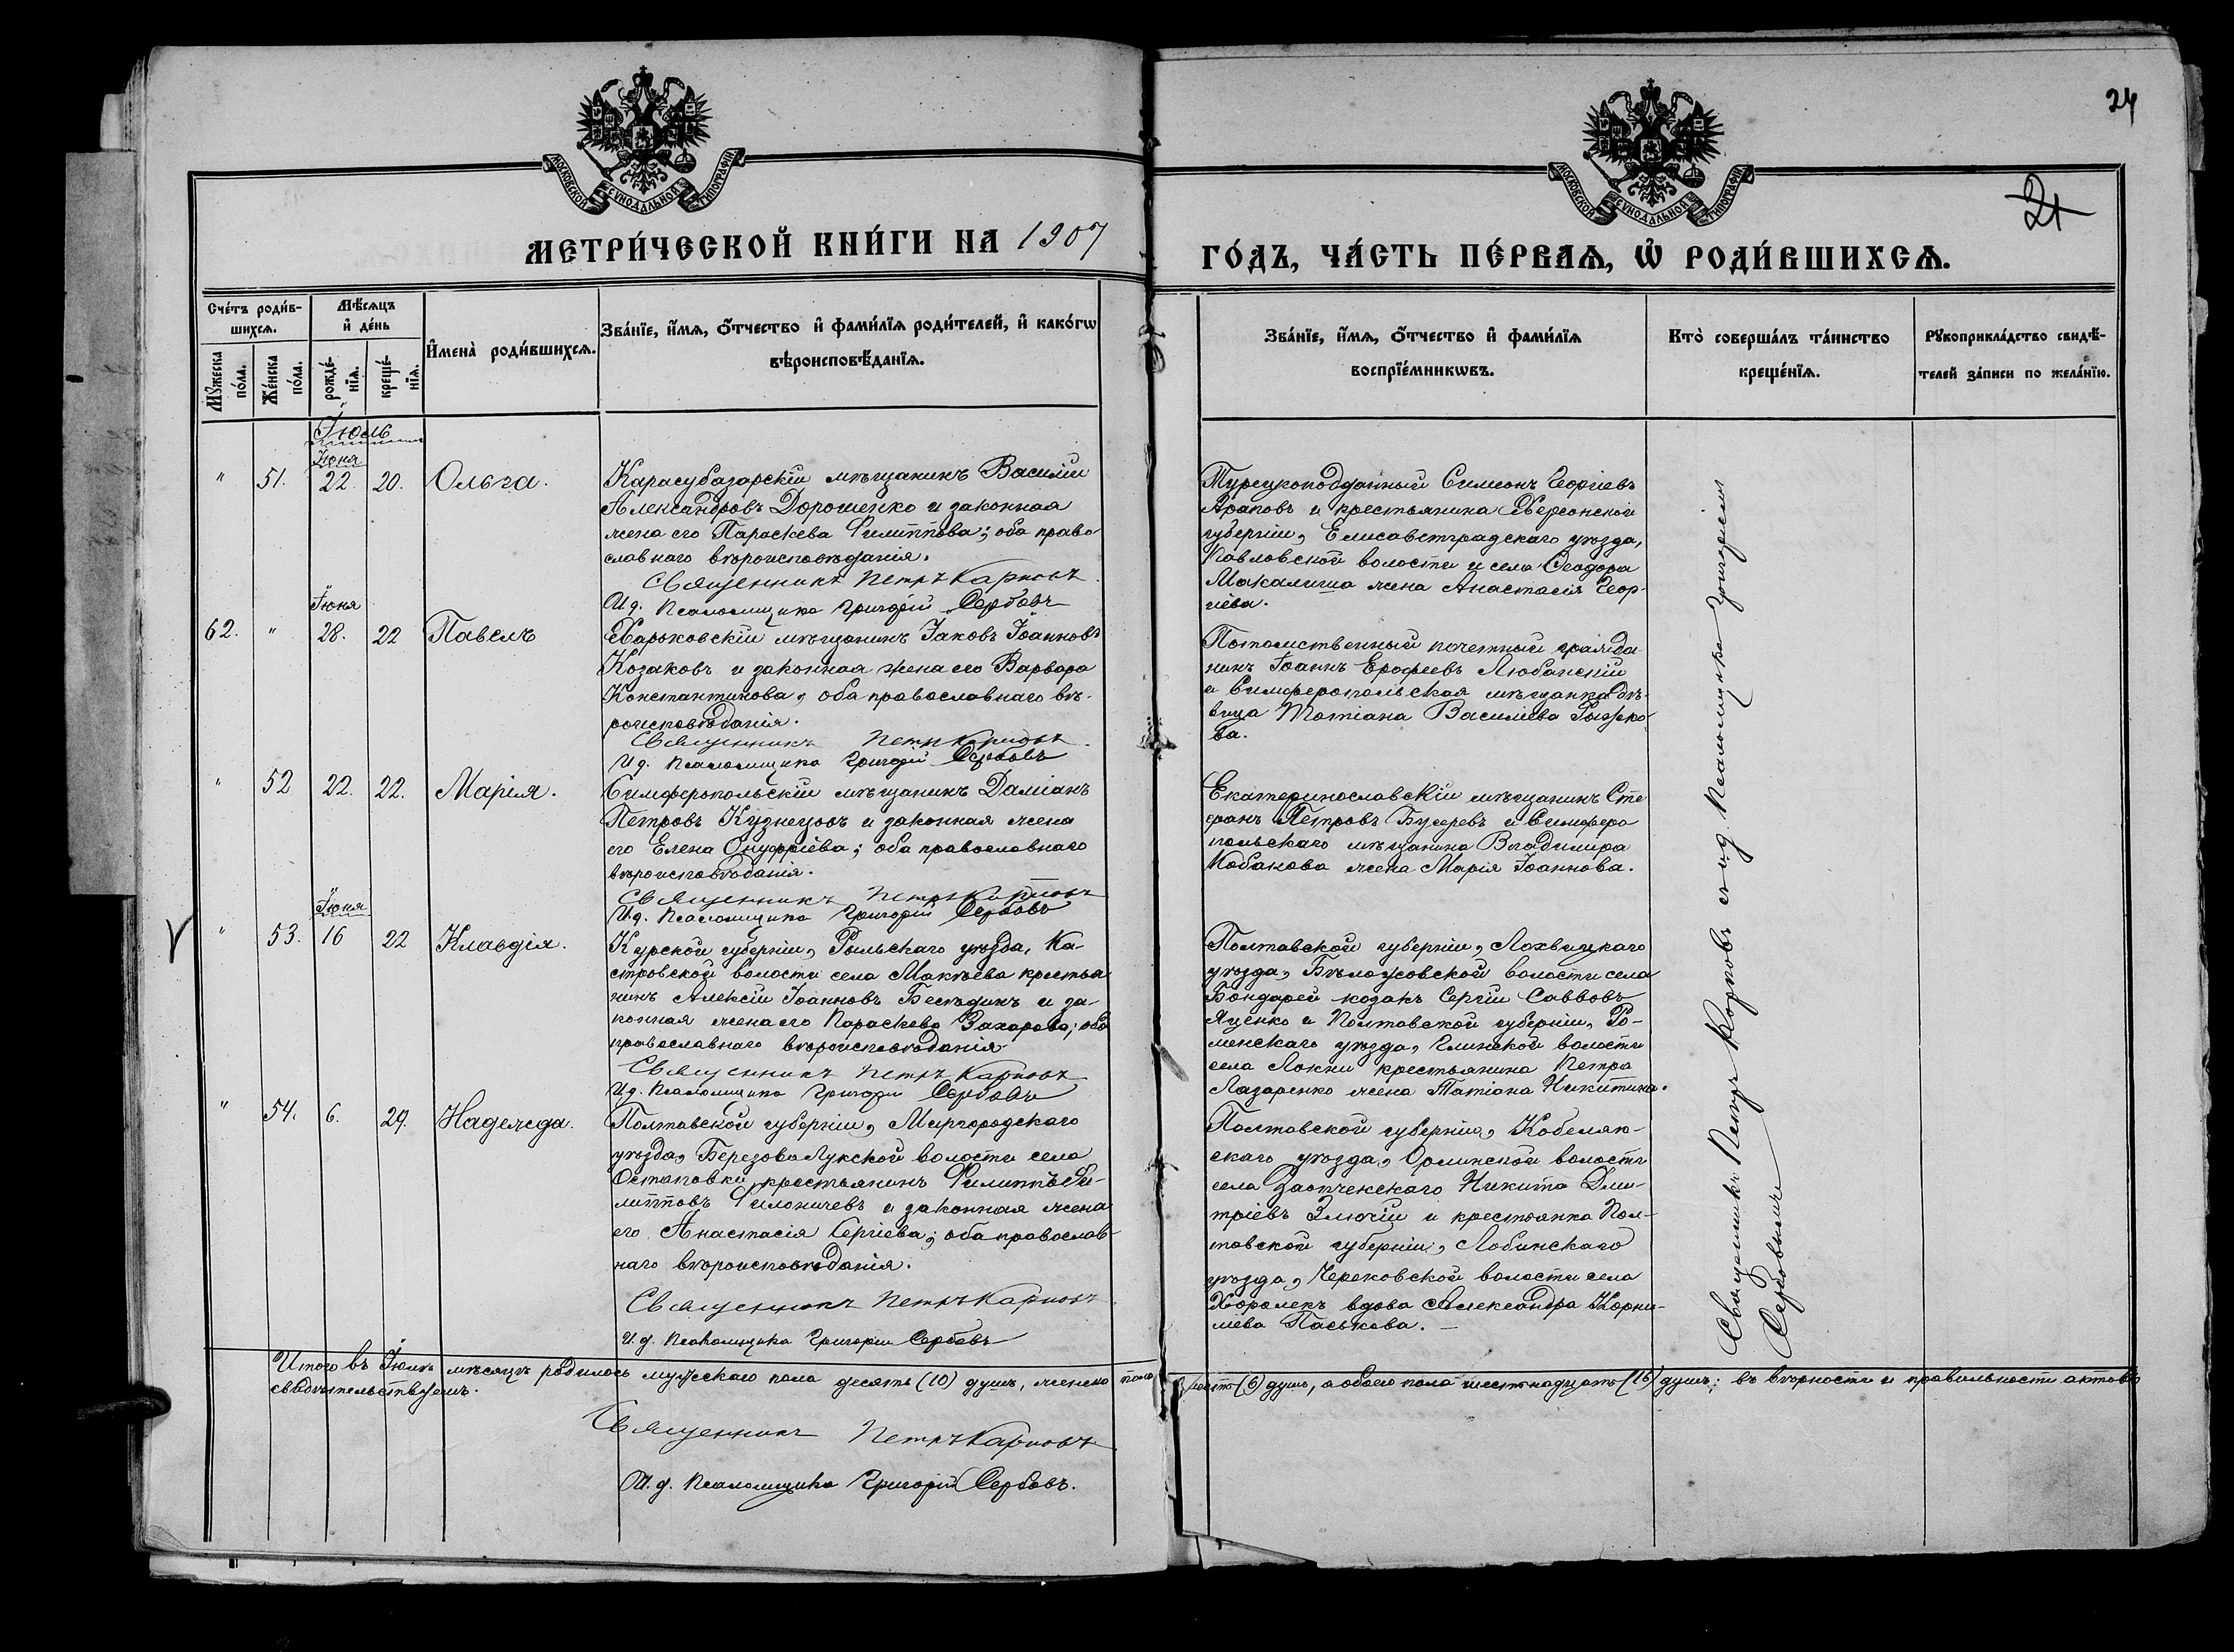 24
21
МОСКОВСКОЙ СѴНОДАЛЬНОЙ ТИПОГРАФІИ
МОСКОВСКОЙ СѴНОДАЛЬНОЙ ТИПОГРАФІИ
МЕТРИ́ЧЕСКОЙ КНИ́ГИ НА 1907
ГО́ДЪ, ЧА́СТЬ ПЕ́РВАѦ, Ѽ РОДИ́ВШИХСѦ.
Сче́тъ роди́в-
шихсѧ.
Мꙋжеска по́ла.
Же́нска по́ла.
Мѣ́сѧцъ
и҆ де́нь
рожде́-
нїѧ.
креще́-
нїѧ.
И҆мена̀ роди́вшихсѧ.
Зва́нїе, и҆́мѧ, ѻ҆́тчество и҆ фами́лїѧ роди́телей, и҆ како́гѡ
вѣроисповѣ́данїѧ.
Зва́нїе, и҆́мѧ, ѻ҆́тчество и҆ фами́лїѧ
воспрїе́мникѡвъ.
Кто̀ соверша́лъ та́инство
креще́нїѧ.
Рꙋкоприкла́дство свидѣ́-
телей за́писи по жела́нїю.
Іюль
Іюня
" 51. 22. 20. Ольга.
Карасубазарскій мѣщанинъ Василій
Александровъ Дорошенко и законная
жена его Параскева Филиппова; оба право-
славнаго вѣроисповѣданія.
Священникъ Петръ Карповъ
И.д. Псаломщика Григорій Сербовъ
Турецкоподданный Симеонъ Георгіевъ
Араповъ и крестьянина Херсонской
губерніи, Елисаветградскаго уѣзда,
Павловской волости и села Ѳеодора
жена Анастасія Геор-
гіева.
Іюня
62. " 28. 22 Павелъ
Харьковскій мѣщанинъ Іаковъ Іоанновъ
Козаковъ и законная жена его Варвара
Константинова, оба православнаго вѣ-
роисповѣданія.
Священникъ Петръ Карповъ
И.д. Псаломщика Григорій Сербовъ
Потомственный почетный гражда-
нинъ Іоаннъ Ерофеевъ Любанскій
и Симферопольская мѣщанка дѣ-
вица Татіана Василіева Рыжко-
ва.
" 52 22. 22. Марія.
Симферопольскій мѣщанинъ Даміанъ
Петровъ Кузнецовъ и законная жена
его Елена Онуфріева; оба православнаго
вѣроисповѣданія.
Священникъ Петръ Карповъ
И.д. Псаломщика Григорій Сербовъ
Екатеринославскій мѣщанинъ Сте-
фанъ Петровъ и Симферо
польскаго мѣщанина Владиміра
Кабакова жена Марія Іоаннова.
Іюня
V " 53. 16 22 Клавдія.
Курской губерніи, Рыльскаго уѣзда, Ка-
стровской волости села Макѣева крестья
нинъ Алексій Іоанновъ Бесѣдинъ и за-
конная жена его Параскева Захарова; оба
православнаго вѣроисповѣданія
Священникъ Петръ Карповъ
И.д. Псаломщика Григорій Сербовъ
Полтавской губерніи, Лохвицкаго
уѣзда, Бѣлоусовской волости села
Бондарей козакъ Сергій Савовъ
Яценко и Полтавской губерніи, Ро-
менскаго уѣзда, Глинской волости
села Локни крестьянина Петра
Лазаренко жена Татіана Никитина.
" 54. 6. 29. Надежда.
Полтавской губерніи, Миргородскаго
уѣзда, Березоволукской волости села
Остаповки крестьянинъ Филиппъ Фи-
липповъ и законная жена
его Анастасія Сергіева; оба православ-
наго вѣроисповѣданія.
Священникъ Петръ Карповъ
И.д. Псаломщика Григорій Сербовъ
Полтавской губерніи, Кобеляк-
скаго уѣзда, волости
села Никита Дми-
тріевъ и крестьянка Пол-
тавской губерніи,
уѣзда, волости села
вдова Александра Корни-
лиева Паськова. —
Священникъ Петръ Карповъ и и.д. Псаломщика Григорій
Итого въ Іюлѣ мѣсяцѣ родилось мужскаго пола десять (10) душъ, женска пола шесть (6) душъ, а обоего пола шестнадцать (16) душъ; въ вѣрности и правильности актовъ
свидѣтельствуемъ.
Священникъ Петръ Карповъ
И.д. Псаломщика Григорій Сербовъ.